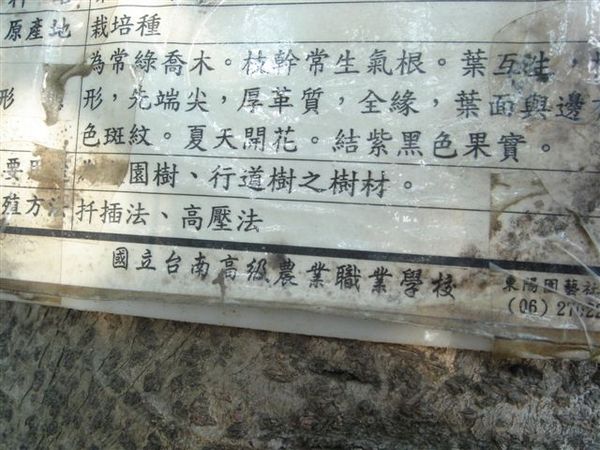 原產地 栽培種
為常綠喬木。枝幹常生氣根。葉互生，
形 形，先端尖，厚革質，全緣，葉面與邊
色斑紋。夏天開花。結紫黑色果實。
要 園樹、行道樹之樹材。
殖方法 扦插法、高壓法
國立台南高級農業職業學校
東陽園藝社
(06)